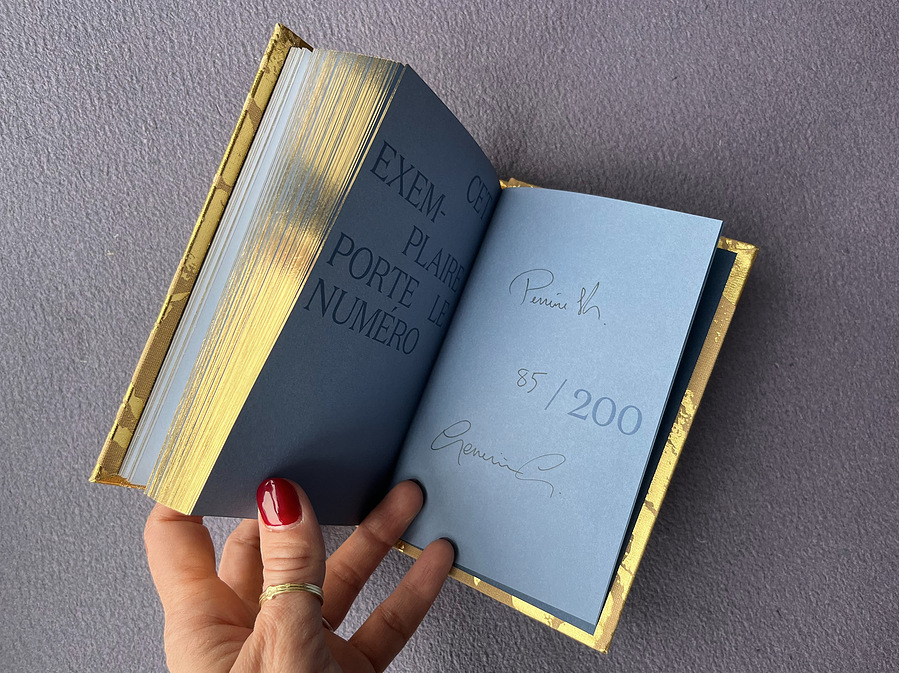 CET
EXEM-
PLAIRE
PORTE LE
NUMÉRO
Perrine
85 / 200